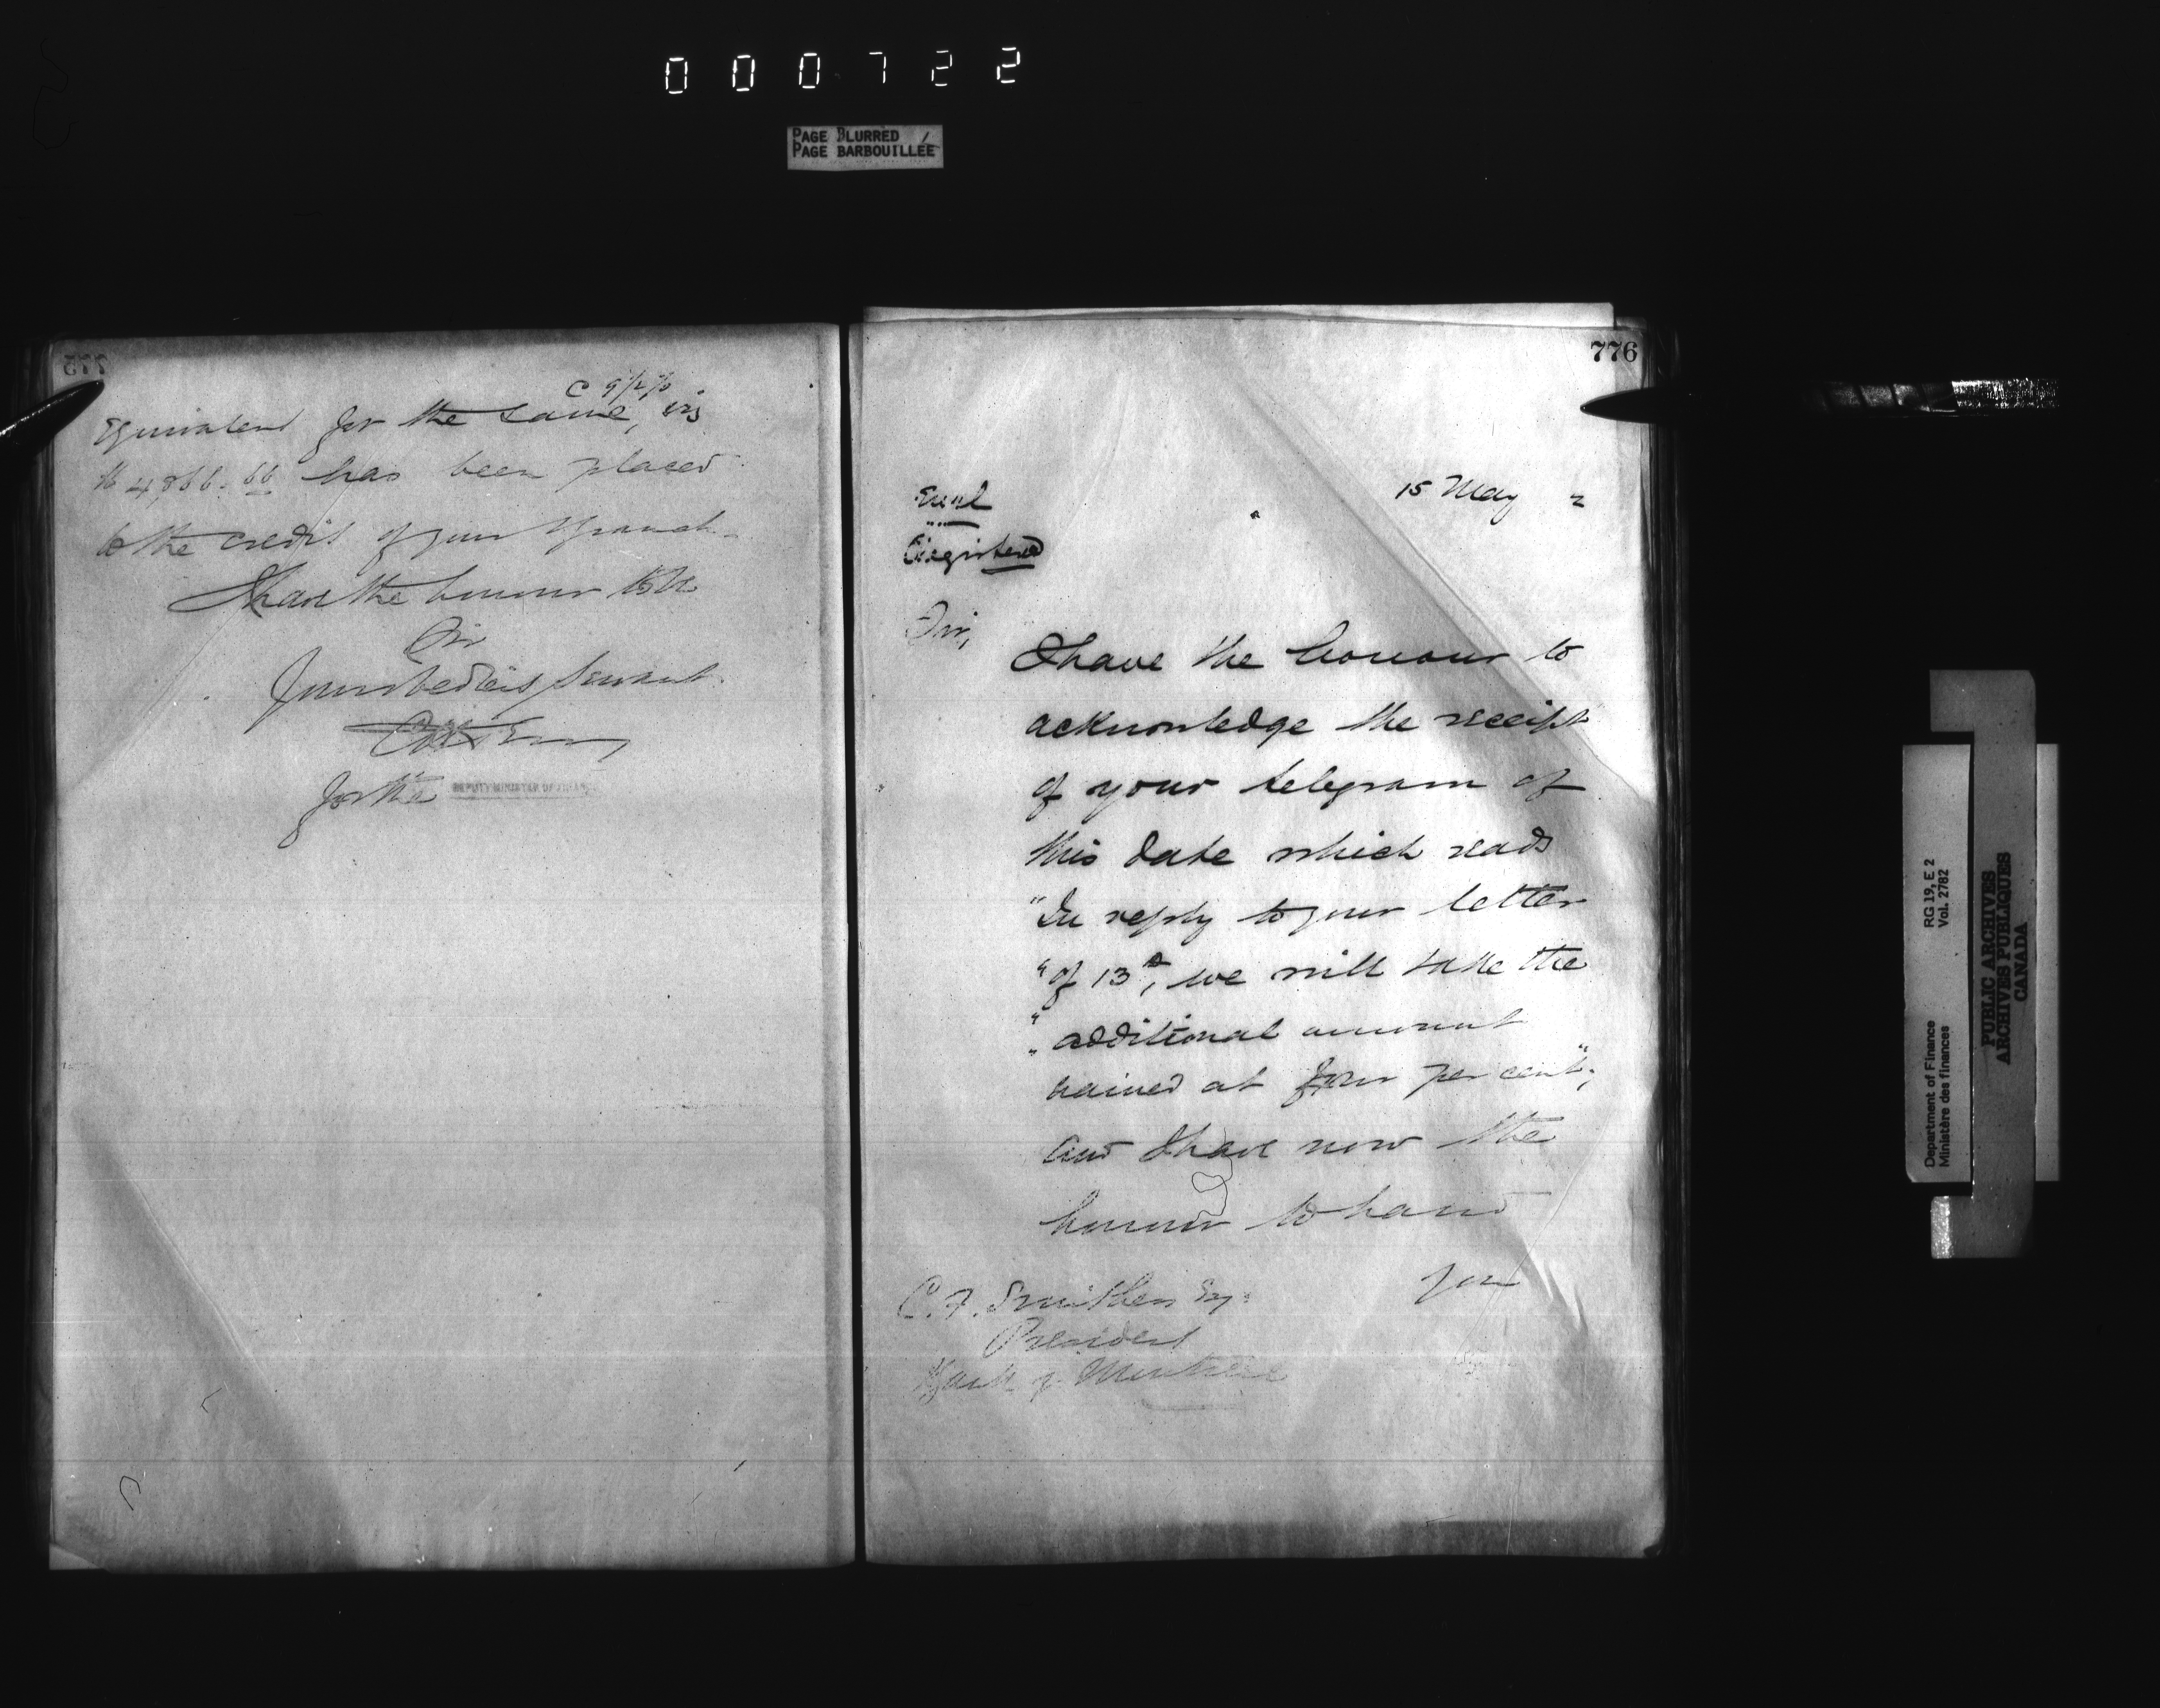 000722
PAGE BLURRED
PAGE BARBOUILLÉE
775
@ 9 1/2 %
Equivalent for the same, viz
$4,866.66 has been placed
to the credit of your Branch.
I have the honour to be
Sir
Your obedient Servant
for the DEPUTY MINISTER OF FINANCE
776
15 May 2
Encl
Registered
Sir,
I have the honour to
acknowledge the receipt
of your telegram of
this date which reads
"In reply to your letter
"of 13th, we will take the
"additional amount
"named at four per cent",
and I have now the
honour to hand
you
C. F. Smithers Esq.
President
Bank of Montreal
Department of Finance RG 19, E 2
Ministère des finances Vol. 2782
PUBLIC ARCHIVES
ARCHIVES PUBLIQUES
CANADA